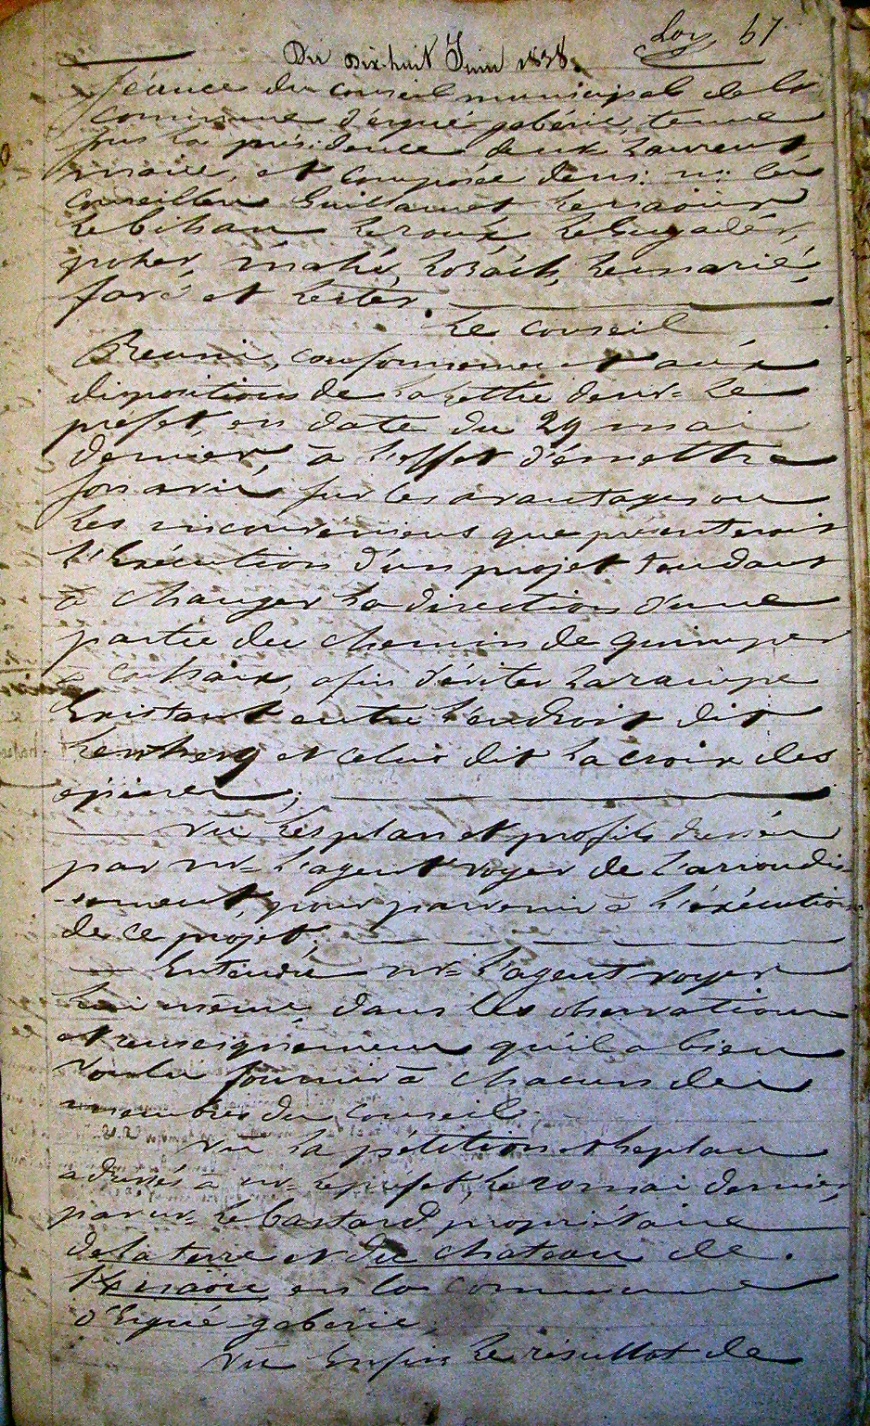 67
Du Dix-huit Juin 1838.
Séance du conseil municipal de la
commune d'ergué gabéric, tenue
sous la présidence de mr Laurent
maire, et composée de m.m. les
Conseillers Guillamet Lenaour
Lebihan Leroux
poher, mahé, Lozach, Lemarié,
faré et Lester.
Le conseil
Reuni, conformement aux
dispositions de la lettre de mr le
préfet en date du 29 mai
dernier, à l'effet d'émettre
son avis sur les avantages ou
les inconveniens que présenterait
l'Exécution d'un projet tendant
à changer la direction d'une
partie du chemin de quimper
à Corhaix, afin d'éviter la rampe
Existant entre l'endroit dit
et celui dit la croix des
épines;
Vu les plan et profils dressés
par mr l'agent voyer de l'arrondis-
-sement, pour parvenir à l'exécution
de ce projet;
Entendu mr l'agent voyer
lui même dans les observations
et renseignemens qu'il a bien
voulu fournir à chacun des
membres du conseil.
Vu la pétition et le plan
adressés à mr le préfet, le 20 mai dernier,
par mr Lebastard, propriétaire
de la terre et du chateau de
en la commune
d'Ergué-gabéric;
Vu Enfin le résultat de